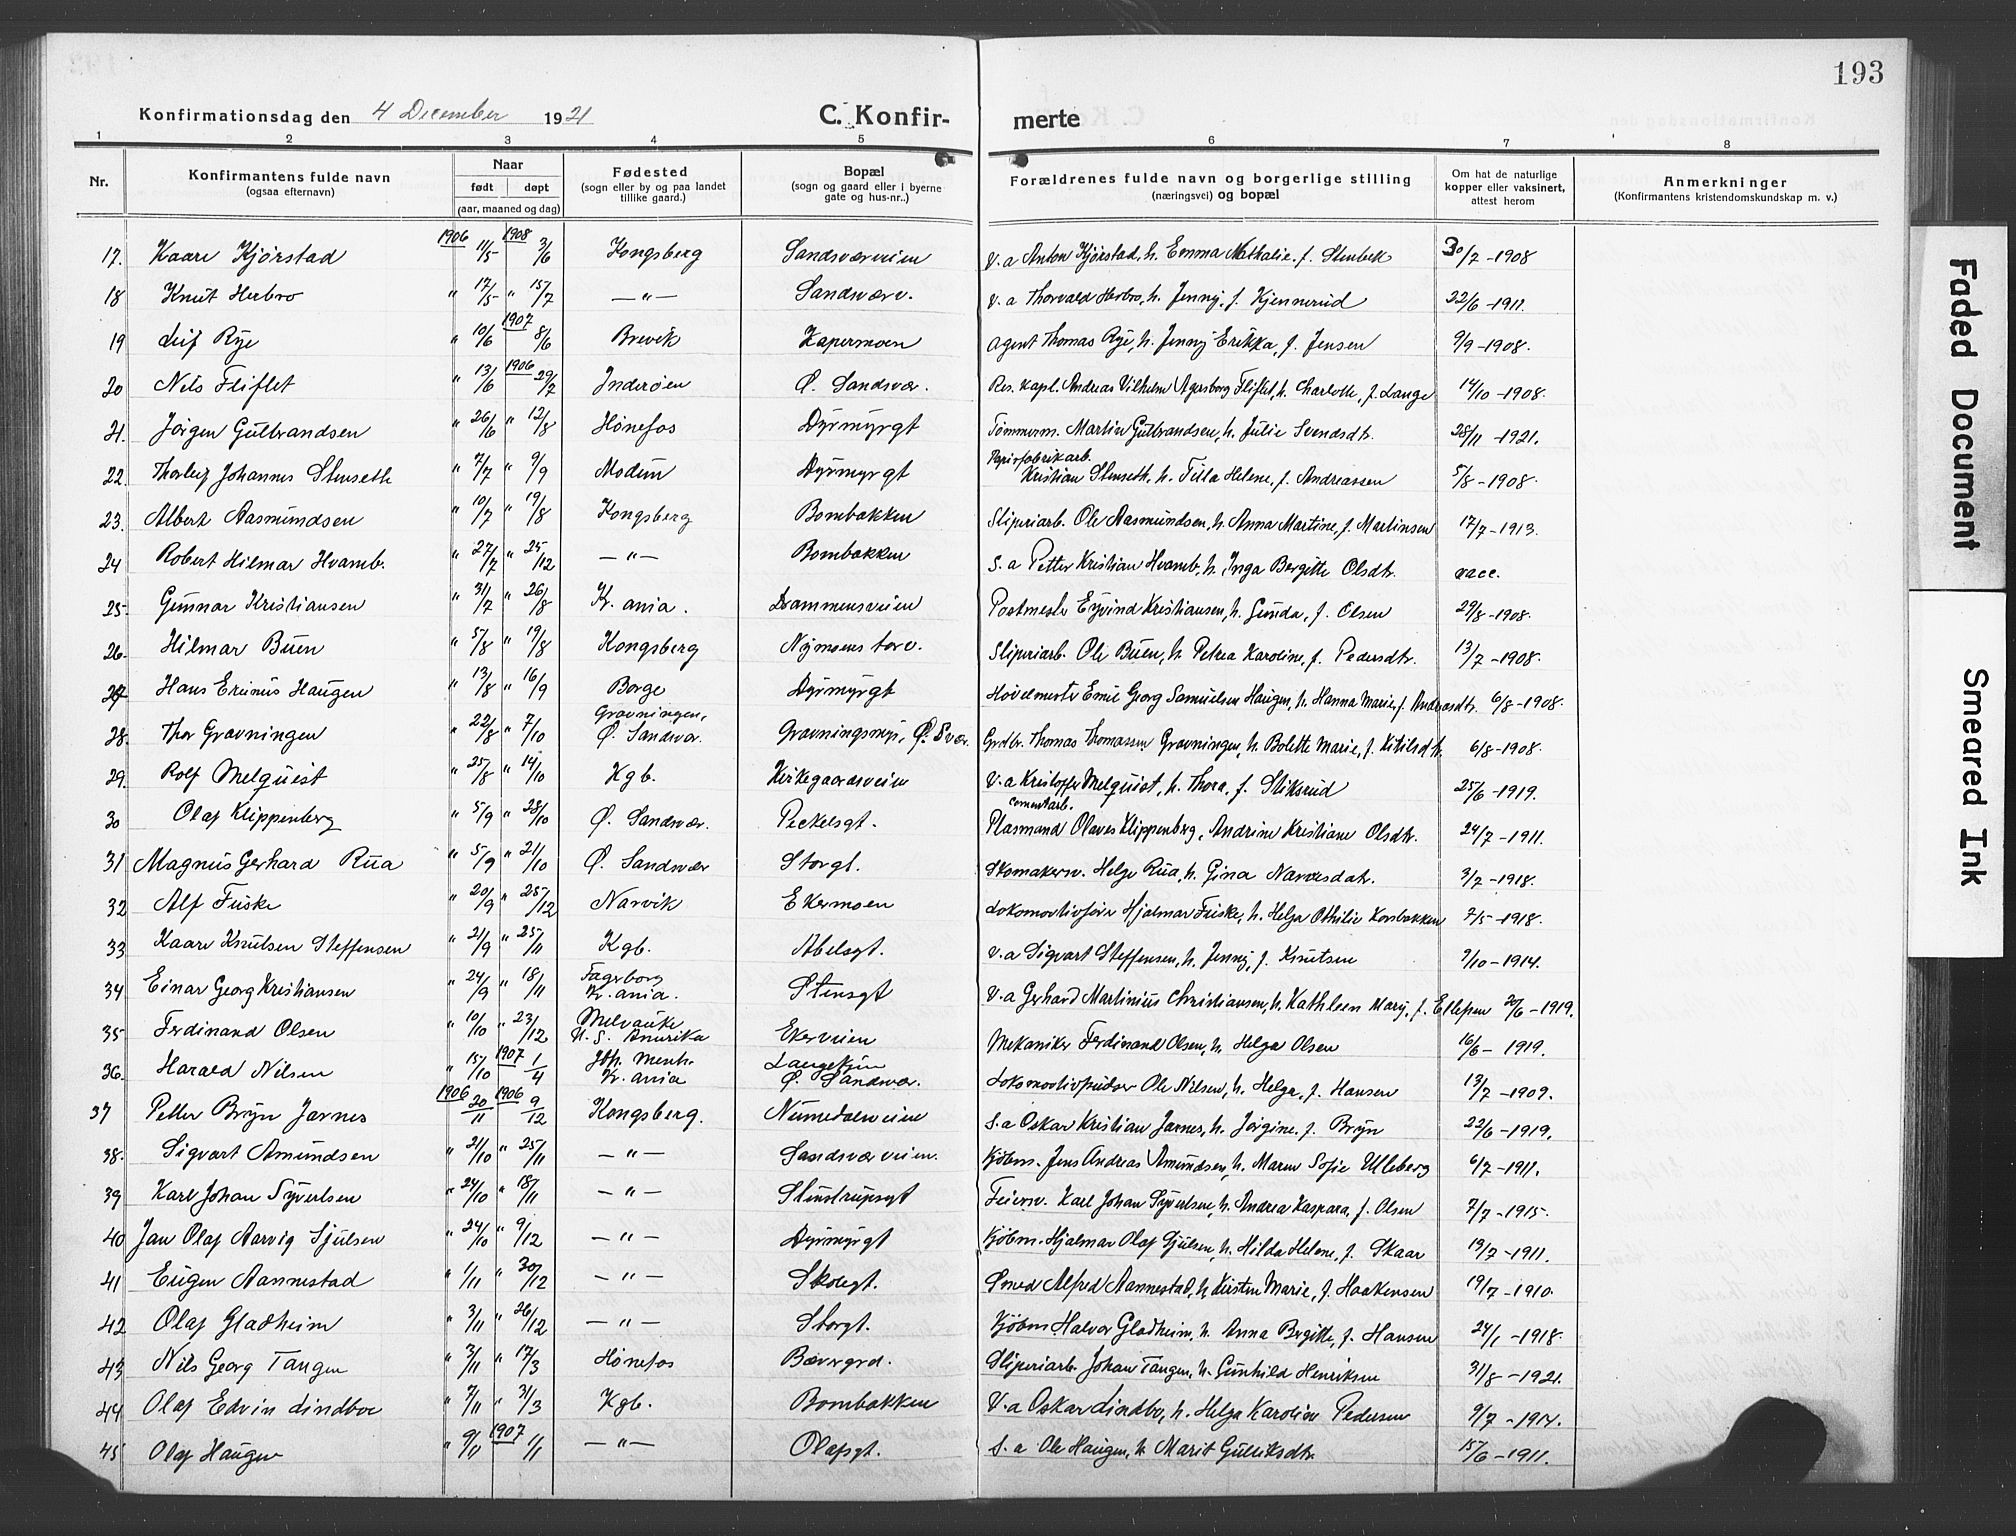 193
Konfirmationsdag den 4 December 1921 C. Konfir- merte
1 2 3 4 5 6 7 8
Nr. Konfirmantens fulde navn (ogsaa efternavn) Naar født døpt (aar, maaned og dag) Fødested (sogn eller by og paa landet tillike gaard.) Bopæl (sogn og gaard eller i byerne gate og hus-nr..) Forældrenes fulde navn og borgerlige stilling (næringsvei) og bopæl Om hat de naturlige kopper eller vaksinert, attest herom Anmerkninger (Konfirmantens kristendomskundskap m. v.)
17. Kaare Kjørstad 1906 11/5 1908 3/6 Kongsberg Sandsværveien V.a Anton Kjørstad, h. Emma Mathalie f. Stenbek 30/7 - 1908
18 Knut Herbro " 17/5 " 15/7 — " — Sandsværv. V.a Thorvald Herbro, h. Jenny, f. Kjennerud 22/6 - 1911.
19 Leif Rye " 10/6 1907 8/6 Brevik Kapermoen Agent Thomas Rye, h. Jenny Erikka, f. Jensen 9/9 - 1908.
20 Nils Fliflet " 13/6 1906 29/7 Inderøen Ø. Sandsvær. Res. kapl. Andreas Vilhelm Agersborg Fliflet, h. Charlotte, f. Lange 14/10 - 1908.
21. Jørgen Gulbrandsen " 26/6 " 12/8 Hønefos Dyrmyrgt Tømmerm. Martin Gulbrandsen, h. Julie Svendsdtr. 28/11 - 1921.
22. Thorleif Johannes Stenseth " 7/7 " 9/9 Modum Dyrmyrgt Papirfabrikarb. Kristian Stenseth, h. Tilla Helene, f. Andreassen 5/8 - 1908.
23. Albert Aasmundsen " 10/7 " 19/8 Kongsberg Bombakken Sliperiarb. Ole Aasmundsen, h. Anna Martine, f. Martinsen 17/7 - 1913.
24 Robert Hilmar Hvamb. " 27/7 " 25/12 — " — Bombakken S.a Petter Kristian Hvamb, h. Inga Bergitte Olsdtr. vacc.
25. Gunnar Kristiansen " 31/7 " 26/8 Kr.ania. Drammensveien Postmester Eyvind Kristiansen, h. Gunda, f. Olsen 29/8 - 1908.
26. Hilmar Buen " 5/8 " 19/8 Kongsberg Nymoens torv. Sliperiarb. Ole Buen, h. Petrea Karoline, f. Pedersdtr. 13/7 - 1908.
27 Hans Erinus Haugen " 13/8 " 16/9 Borge Dyrmyrgt Høvelmester Emil Georg Samuelsen Haugen, h. Hanna Marie, f. Andreasdtr. 6/8 - 1908.
28. Thor Gravningen " 22/8 " 7/10 Gravningen, Ø. Sandsvær. Gravningsmyr, Ø. Svær. Grdbr. Thomas Thomassen Gravningen, h. Bolette Marie, f. Kittilsdtr. 6/8 - 1908.
29. Rolf Melquist " 25/8 " 14/10 Kgb. Kirkegaardsveien V.a Kristoffer Melquist, h. Thora, f. Sliksrud 25/6 - 1919.
30 Olaf Klippenberg " 5/9 " 28/10 Ø. Sandsvær. Peckelsgt. cementarb. Plasmand Olaves Klippenberg, Andrine Kristiane Olsdtr. 24/7 - 1911.
31 Magnus Gerhard Rua " 5/9 " 21/10 Ø. Sandsvær Storgt. Skomakersv. Helge Rua, h. Gina Narvesdatr. 3/7 - 1918.
32 Alf Fuske " 20/9 " 25/12 Narvik Ekermoen Lokomotivfører Hjalmar Fuske, h. Helga Othilie Korsbakken 7/5 - 1918.
33 Kaare Knutsen Steffensen " 21/9 " 25/11 Kgb. Abelsgt. V.a Sigvart Steffensen, h. Jenny, f. Knutsen 9/10 - 1914.
34 Einar Georg Kristiansen " 24/9 " 18/11 Fagerborg Kr.ania. Stensgt V.a Gerhard Martinius Christiansen, h. Kathleen Mary, f. Ellefsen 20/6 - 1919.
35 Ferdinand Olsen " 10/10 " 23/12 Melvauke U.S. Amerika Ekerveien Mekaniker Ferdinand Olsen, h. Helga Olsen 16/6 - 1919.
36. Harald Nilsen " 15/10 1907 1/4 Joh. menh. Kr.ania Langekjen Ø. Sandsvær. Lokomotivpudser Ole Nilsen, h. Helga, f. Hansen 13/7 - 1909.
37 Petter Bryn Jarnes 1906 20/11 1906 9/12 Kongsberg. Numedalsveien S.a Oskar Kristian Jarnes, h. Jørgine, f. Bryn 22/6 - 1919.
38. Sigvart Amundsen " 21/10 " 25/11 — " — Sandsværveien. Kjøbm. Jens Andreas Amundsen, h. Maren Sofie Ulleberg 6/7 - 1911.
39 Karl Johan Syvertsen " 24/10 " 18/11 — " — Stenstrupsgt Feiersv. Karl Johan Syvertsen, h. Andrea Kaspara, f. Olsen 7/7 - 1915.
40 Jan Olaf Aarvig Sjulsen " 24/10 " 9/12 — " — Dyrmyrgt Kjøbm. Hjalmar Olaf Sjulsen, h. Hilda Helene, f. Skaar 13/7 - 1911.
41 Eugen Aannestad " 1/11 " 30/12 — " — Skolegt. Smed Alfred Aannestad, h. Kirsten Marie, f. Haakensen 19/7 - 1910.
42 Olaf Gladheim " 3/11 " 26/12 — " — Storgt. Kjøbm Halvor Gladheim, h. Anna Birgitte, f. Hansen 24/1 - 1918.
43 Nils Georg Tangen " 3/11 " 17/3 Hønefos Bævergrd. Sliperiarb. Johan Tangen, h. Gunhild Henriksen 31/8 - 1921.
44 Olaf Edvin Lindboe " 7/11 " 31/3 Kgb. Bombakken V.a Oskar Lindbo, h. Helga Karoline Pedersen 9/7 - 1914.
45 Olaf Haugen " 9/11 1907 1/1 — " — Olafsgt. S.a Ole Haugen, h. Marit Gulliksdtr. 15/6 - 1911.
Faded Document
Smeared Ink